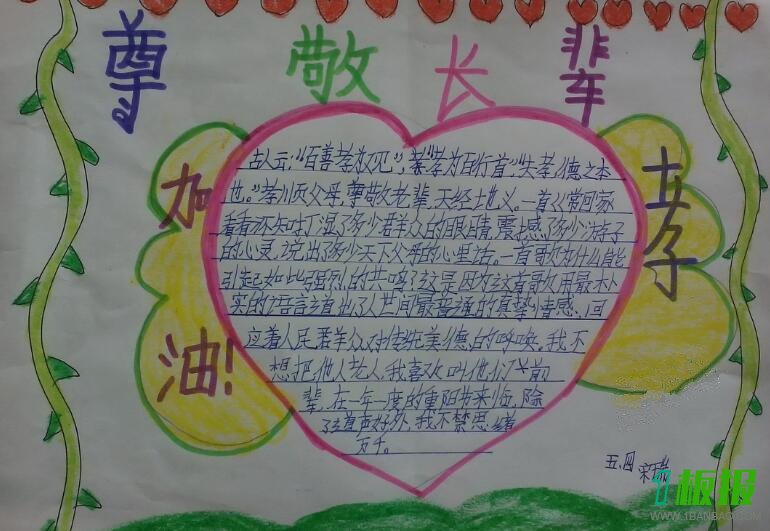 尊敬长辈
加油!
孝
古人云:“百善孝为先”,“孝为百行首”,“夫孝,德之本
也。”孝川页父母,尊敬老辈,天经地义。一首《常回家
看看不知打湿了多少群众的眼睛,震撼了多少游子
的心灵,说出了多少天下父母的心里话。一首歌为什么能
引起如此强烈的共鸣?这是因为这首歌用最朴
实的语言道出了人世间最普通的真挚情感,回
应着人民群众对传统美德的呼唤。我不
想把他人老人,我喜欢叫他们“前
辈,在一年一度的重阳节来临,除
了道声好外,我不禁思绪
万千。
五、四
1板报
WWW.1BANBAO.COM